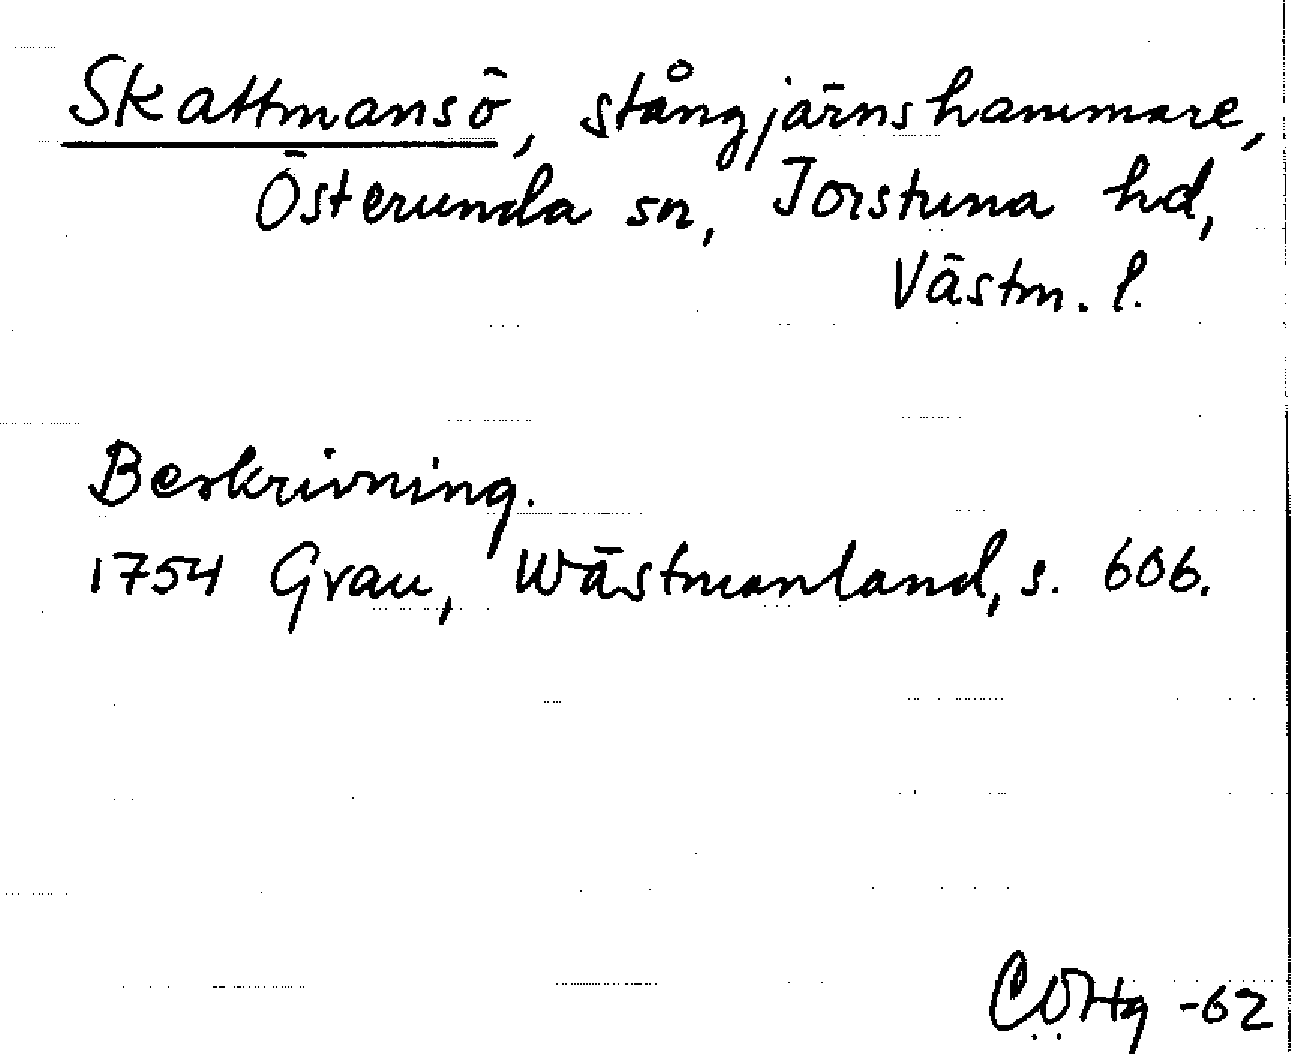 Skattmansö, stångjärnshammare,
Österunda sn, Torstuna hd,
Västm. l.
Beskrivning.
1754 Grau, Wästmanland, s. 606.
-62